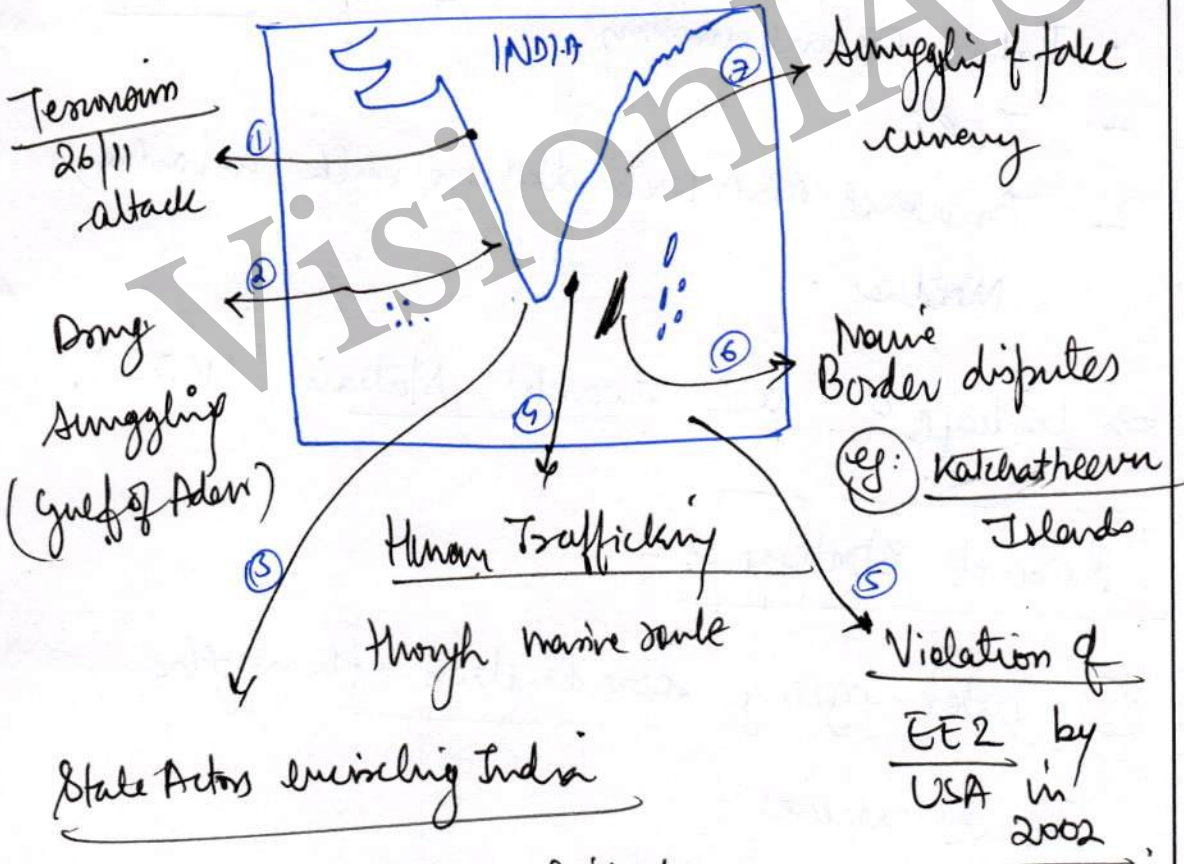 INDIA
① Terrorism
26/11
attack
② Drug
smuggling
(Gulf of Aden)
③ State Actors encircling India
④ Human Trafficking
through marine route
⑤ Violation of
EEZ by
USA in
2002
⑥ Marine
Border disputes
eg: Katchatheevu
Islands
⑦ Smuggling of fake
currency
VisionIAS